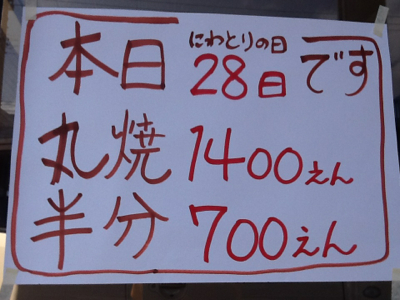 本日 にわとりの日 28日 です
丸焼 1400えん
半分 700えん